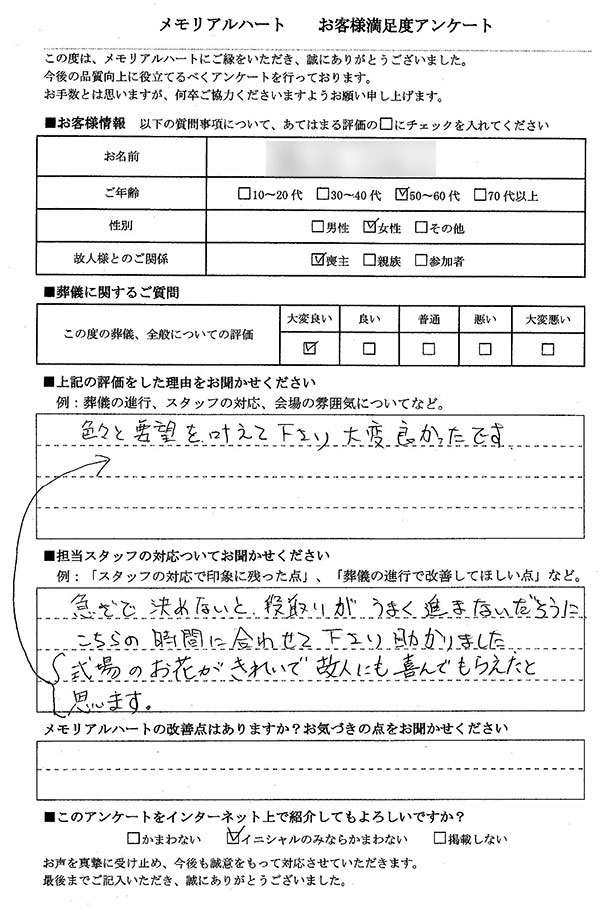 メモリアルハート　　お客様満足度アンケート
この度は、メモリアルハートにご縁をいただき、誠にありがとうございました。
今後の品質向上に役立てるべくアンケートを行っております。
お手数とは思いますが、何卒ご協力くださいますようお願い申し上げます。
■お客様情報　以下の質問事項について、あてはまる評価の□にチェックを入れてください
お名前
ご年齢　□10～20代　□30～40代　☑50～60代　□70代以上
性別　□男性　☑女性　□その他
故人様とのご関係　☑喪主　□親族　□参加者
■葬儀に関するご質問
大変良い　良い　普通　悪い　大変悪い
この度の葬儀、全般についての評価　☑　□　□　□　□
■上記の評価をした理由をお聞かせください
例：葬儀の進行、スタッフの対応、会場の雰囲気についてなど。
色々と要望を叶えて下さり大変良かったです
■担当スタッフの対応ついてお聞かせください
例：「スタッフの対応で印象に残った点」、「葬儀の進行で改善してほしい点」など。
急ぎで決めないと段取りがうまく進まないだろうに
こちらの時間に合わせて下さり助かりました
式場のお花がきれいで故人にも喜んでもらえたと
思います。
メモリアルハートの改善点はありますか？お気づきの点をお聞かせください
■このアンケートをインターネット上で紹介してもよろしいですか？
□かまわない　☑イニシャルのみならかまわない　□掲載しない
お声を真摯に受け止め、今後も誠意をもって対応させていただきます。
最後までご記入いただき、誠にありがとうございました。